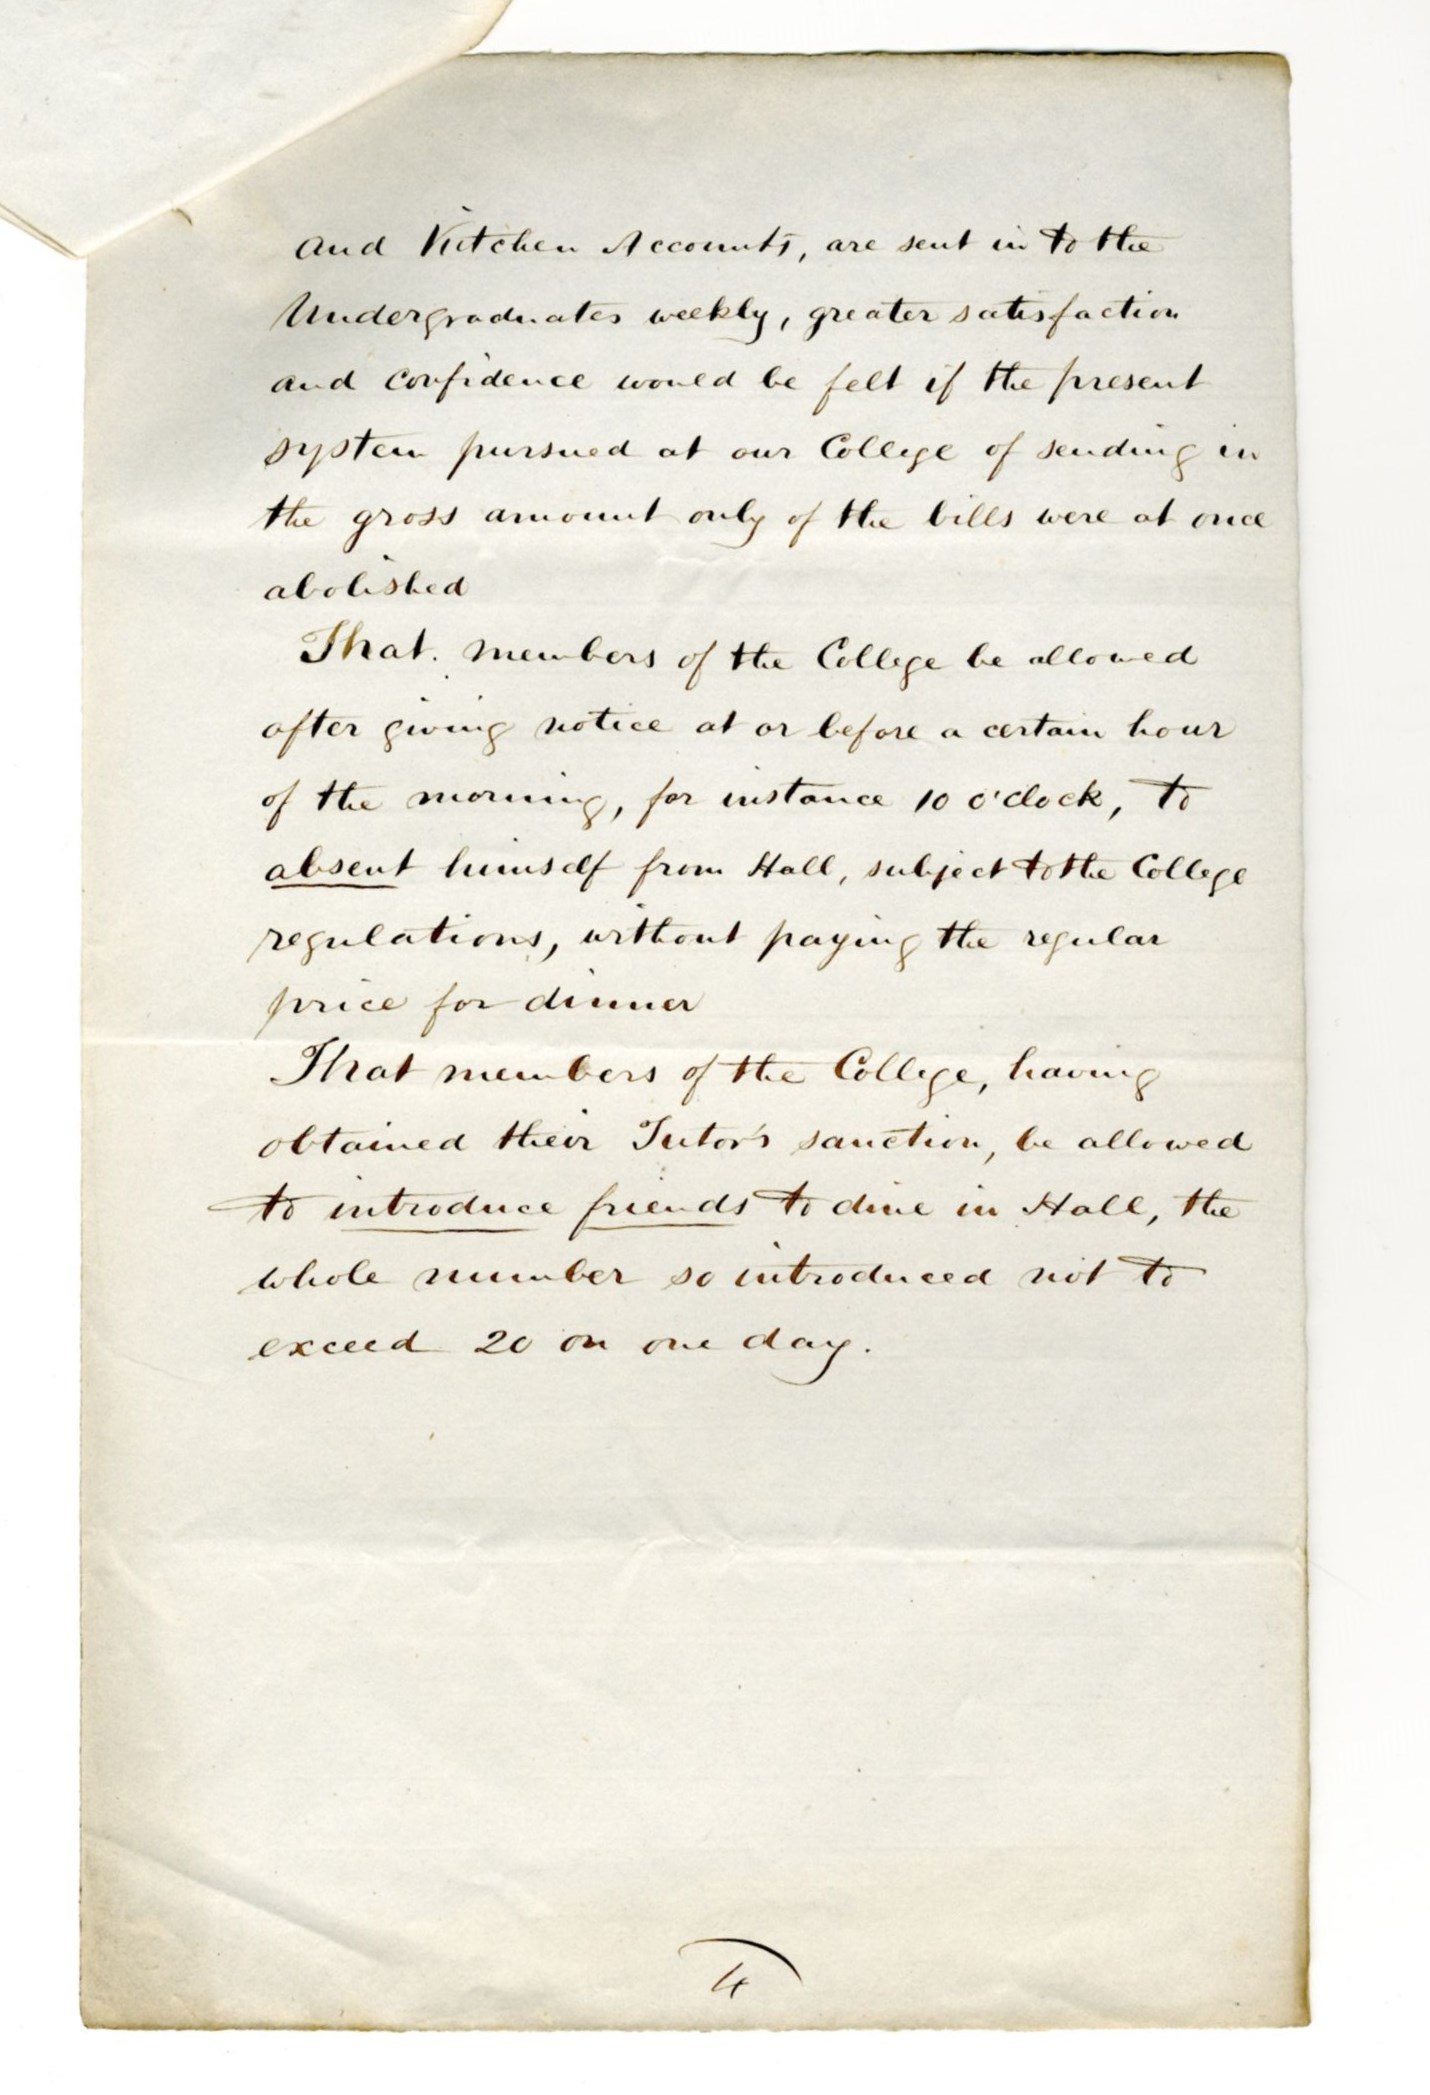 and Kitchen Accounts, are sent in to the
Undergraduates weekly, greater satisfaction
and confidence would be felt if the present
system pursued at our College of sending in
the gross amount only of the bills were at once
abolished
That. members of the College be allowed
after giving notice at or before a certain hour
of the morning, for instance 10 o'clock, to
absent himself from Hall, subject to the College
regulations, without paying the regular
price for dinner
That members of the College, having
obtained their Tutor's sanction, be allowed
to introduce friends to dine in Hall, the
whole number so introduced not to
exceed 20 on one day.
4